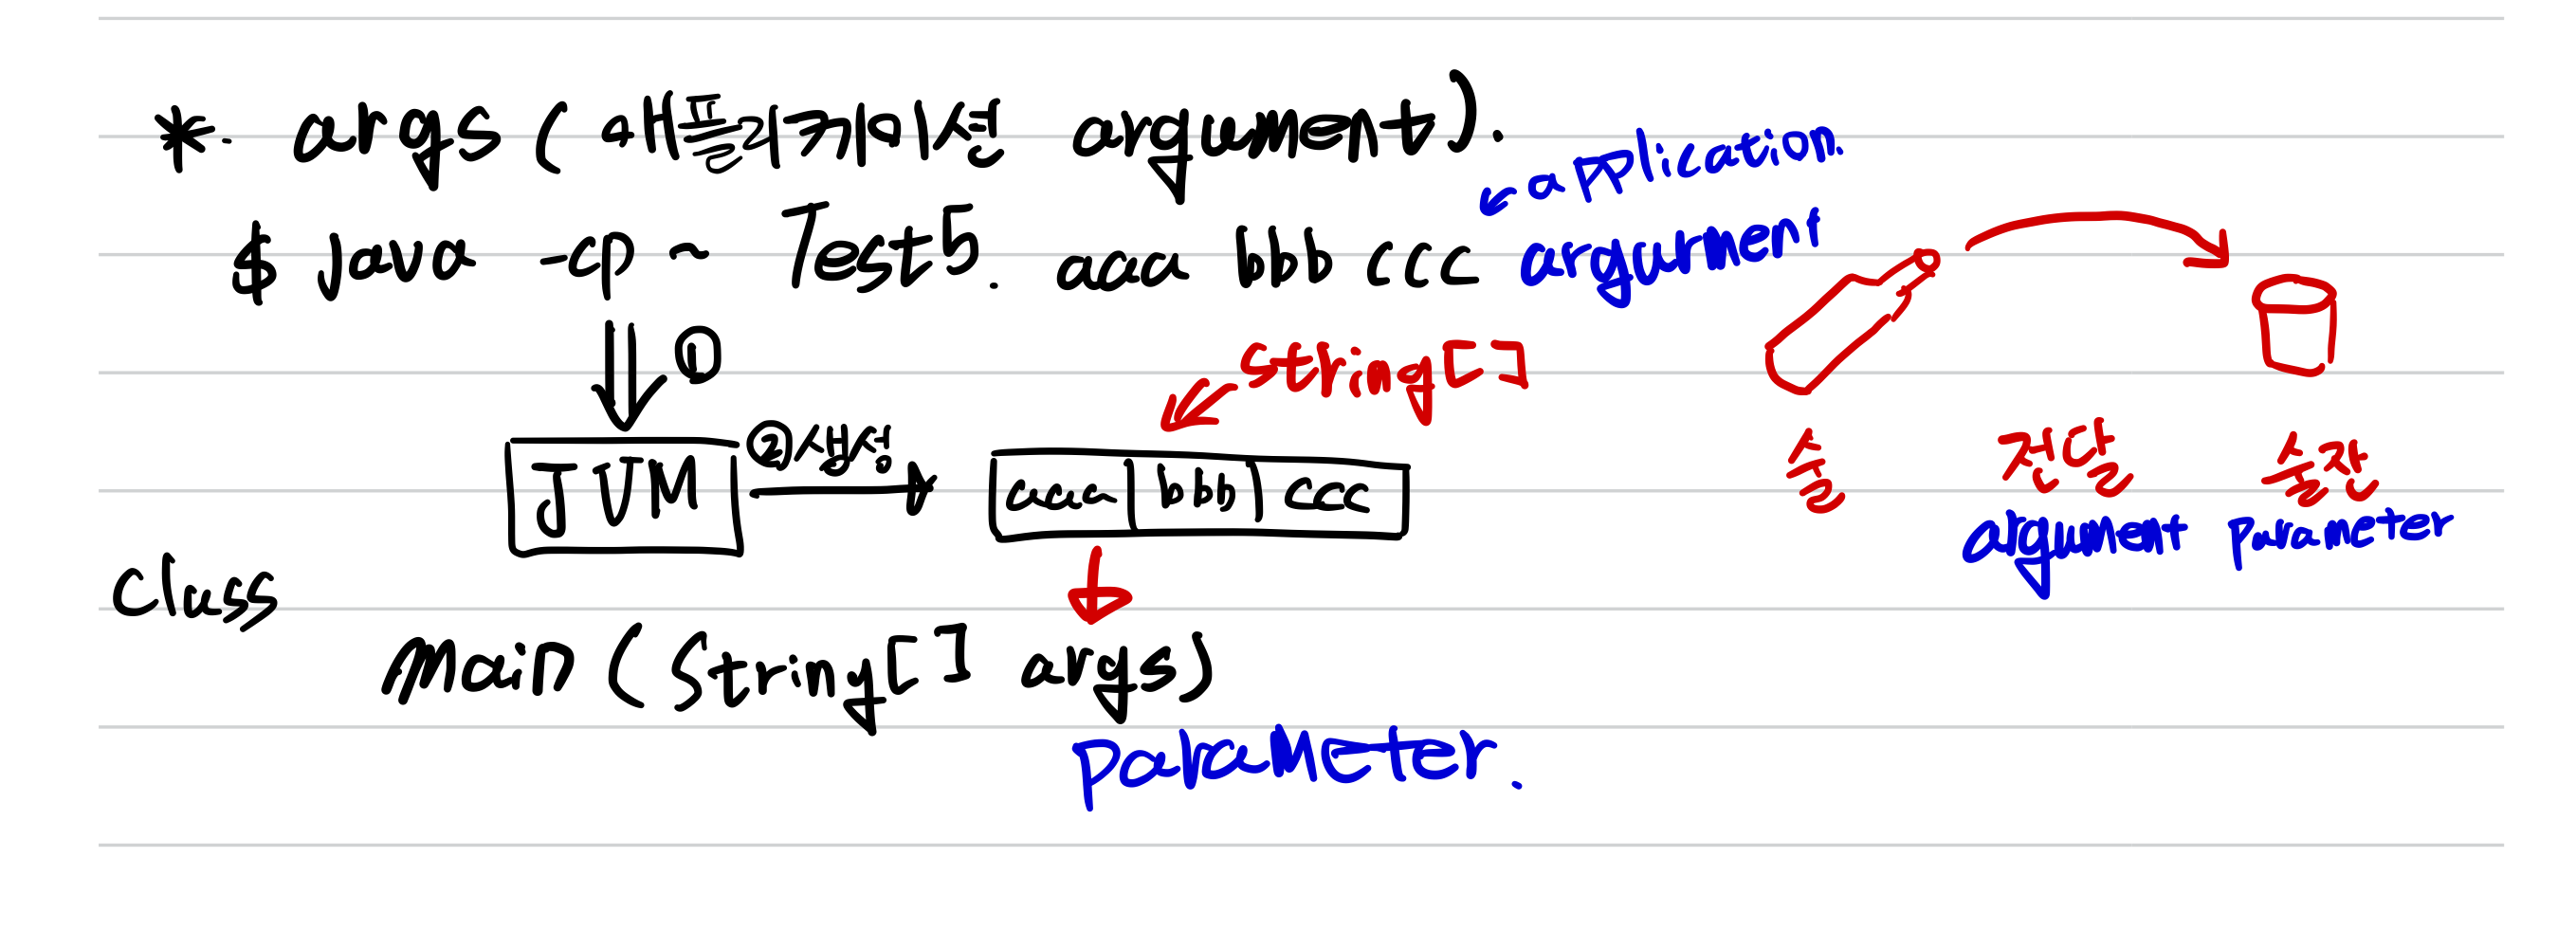 *. args ( 애플리케이션 argument).
← application.
$ java -cp ~ Test5. aaa bbb ccc argurment
① String[]
JVM ②생성 aaa bbb ccc
술 전달 술잔
argument parameter
Class
Main (String[] args)
parameter.